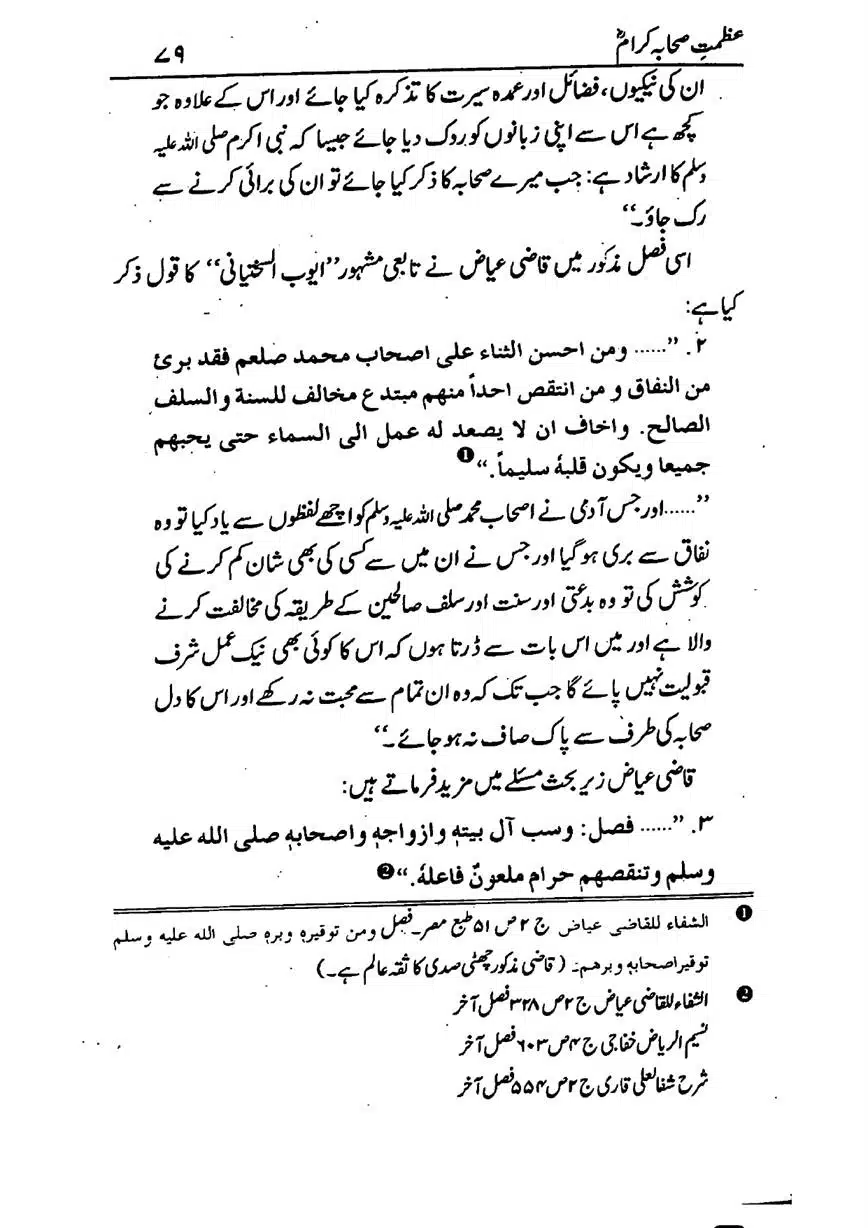 عظمتِ صحابہ کرامؓ
۷۹
ان کی نیکیوں، فضائل اور عمدہ سیرت کا تذکرہ کیا جائے اور اس کے علاوہ جو
کچھ ہے اس سے اپنی زبانوں کو روک دیا جائے جیسا کہ نبی اکرم صلی اللہ علیہ
وسلم کا ارشاد ہے: جب میرے صحابہ کا ذکر کیا جائے تو ان کی برائی کرنے سے
رک جاؤ۔“
اسی فصل مذکور میں قاضی عیاض نے تابعی مشہور ”ایوب السختیانی“ کا قول ذکر
کیا ہے:
۲. ”...... ومن احسن الثناء علی اصحاب محمد صلعم فقد برئ
من النفاق و من انتقص احداً منهم مبتدع مخالف للسنة والسلف
الصالح. واخاف ان لا یصعد له عمل الی السماء حتی یحبهم
جمیعا ویکون قلبهٗ سلیماً.“ ❶
”......اور جس آدمی نے اصحاب محمد صلی اللہ علیہ وسلم کو اچھے لفظوں سے یاد کیا تو وہ
نفاق سے بری ہو گیا اور جس نے ان میں سے کسی کی بھی شان کم کرنے کی
کوشش کی تو وہ بدعتی اور سنت اور سلف صالحین کے طریقہ کی مخالفت کرنے
والا ہے اور میں اس بات سے ڈرتا ہوں کہ اس کا کوئی بھی نیک عمل شرف
قبولیت نہیں پائے گا جب تک کہ وہ ان تمام سے محبت نہ رکھے اور اس کا دل
صحابہ کی طرف سے پاک صاف نہ ہو جائے۔“
قاضی عیاض زیر بحث مسئلے میں مزید فرماتے ہیں:
۳. ”...... فصل: وسب آل بیتهٖ وازواجهٖ واصحابهٖ صلی الله علیه
وسلم وتنقصهم حرام ملعونٌ فاعلهٗ.“ ❷
❶ الشفاء للقاضی عیاض ج ۲ ص ۵۱ طبع مصر۔ فصل ومن توقیرهٖ وبرهٖ صلی الله علیه وسلم
توقیر اصحابهٖ وبرهم۔ (قاضی مذکور چھٹی صدی کا ثقہ عالم ہے۔)
❷ الشفاء للقاضی عیاض ج ۲ ص ۳۲۸ فصل آخر
نسیم الریاض خفاجی ج ۴ ص ۶۰۳ فصل آخر
شرح شفا لعلی قاری ج ۲ ص ۵۵۴ فصل آخر